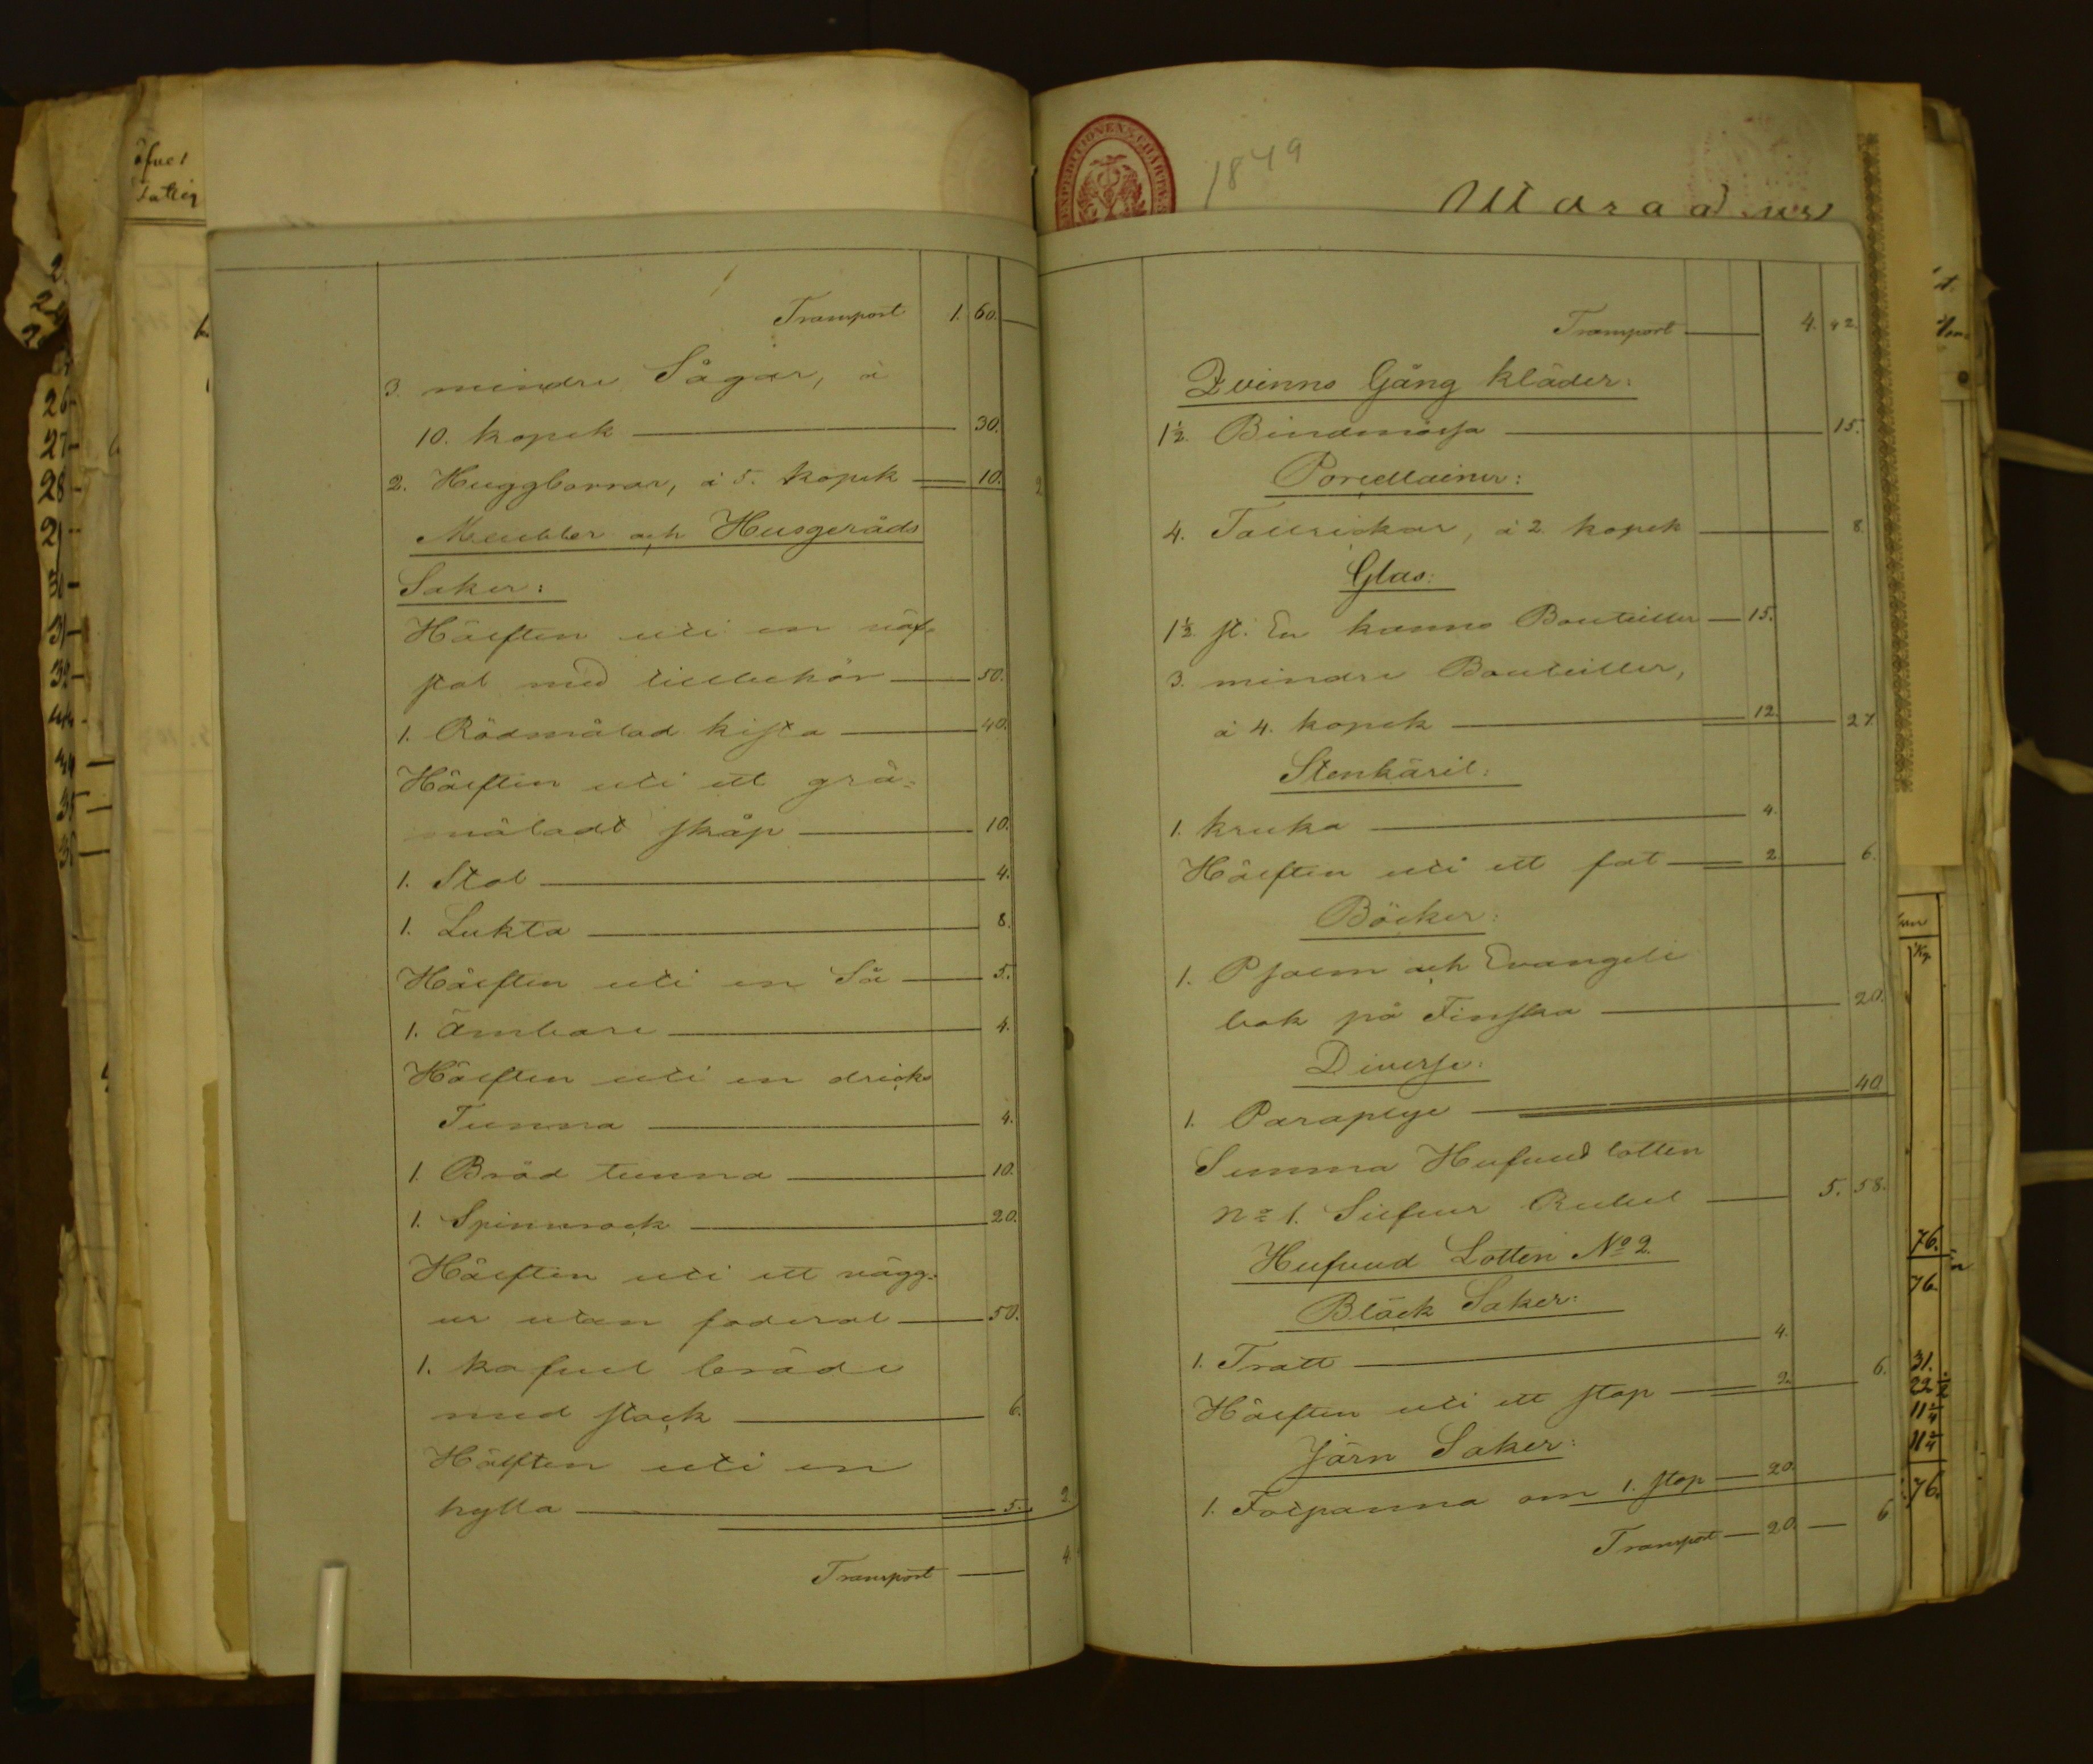 Transport 1. 60.
3. mindre Sågar, à
10. kopek 30.
2. Huggborrar, à 5. kopek 10.
Meubler och Husgeråds
Saker:
Hälften uti en väf-
stol med tillbehör 50.
1. Rödmålad kista 40.
Hälften uti ett grå-
måladt skåp 10.
1. Stol 4.
1. Lukta 8.
Hälften uti en Så 5.
1. Ämbare 4.
Hälften uti en dricks
Tunna 4.
1. Bröd tunna 10.
1. Spinnrock 20.
Hälften uti ett vägg-
ur utan foderal 50.
1. kafvel bräde
med stock 6.
Hälften uti en
hylla 5. 2.
Transport 4.
1849
Transport 4. 42.
Qvinno Gång kläder:
1½. Bindmössa 15.
Porcellainer:
4. Tallrickar, à 2. kopek 8.
Glas:
1½. st. En kanns Bouteiller 15.
3. mindre Bouteiller,
à 4. kopek 12. 27.
Stenkäril:
1. kruka 4.
Hälften uti ett fat 2. 6.
Böcker:
1. Psalm och Evangeli
bok på Finska 20.
Diverse:
1. Paraplye 40.
Summa Hufvud lotten
No 1. Silfver Rubel 5. 58.
Hufvud Lotten No 2.
Bläck Saker:
1. Tratt 4.
Hälften uti ett stop 2. 6.
Järn Saker:
1. Fotpanna om 1. stop 20.
Transport 20. 6